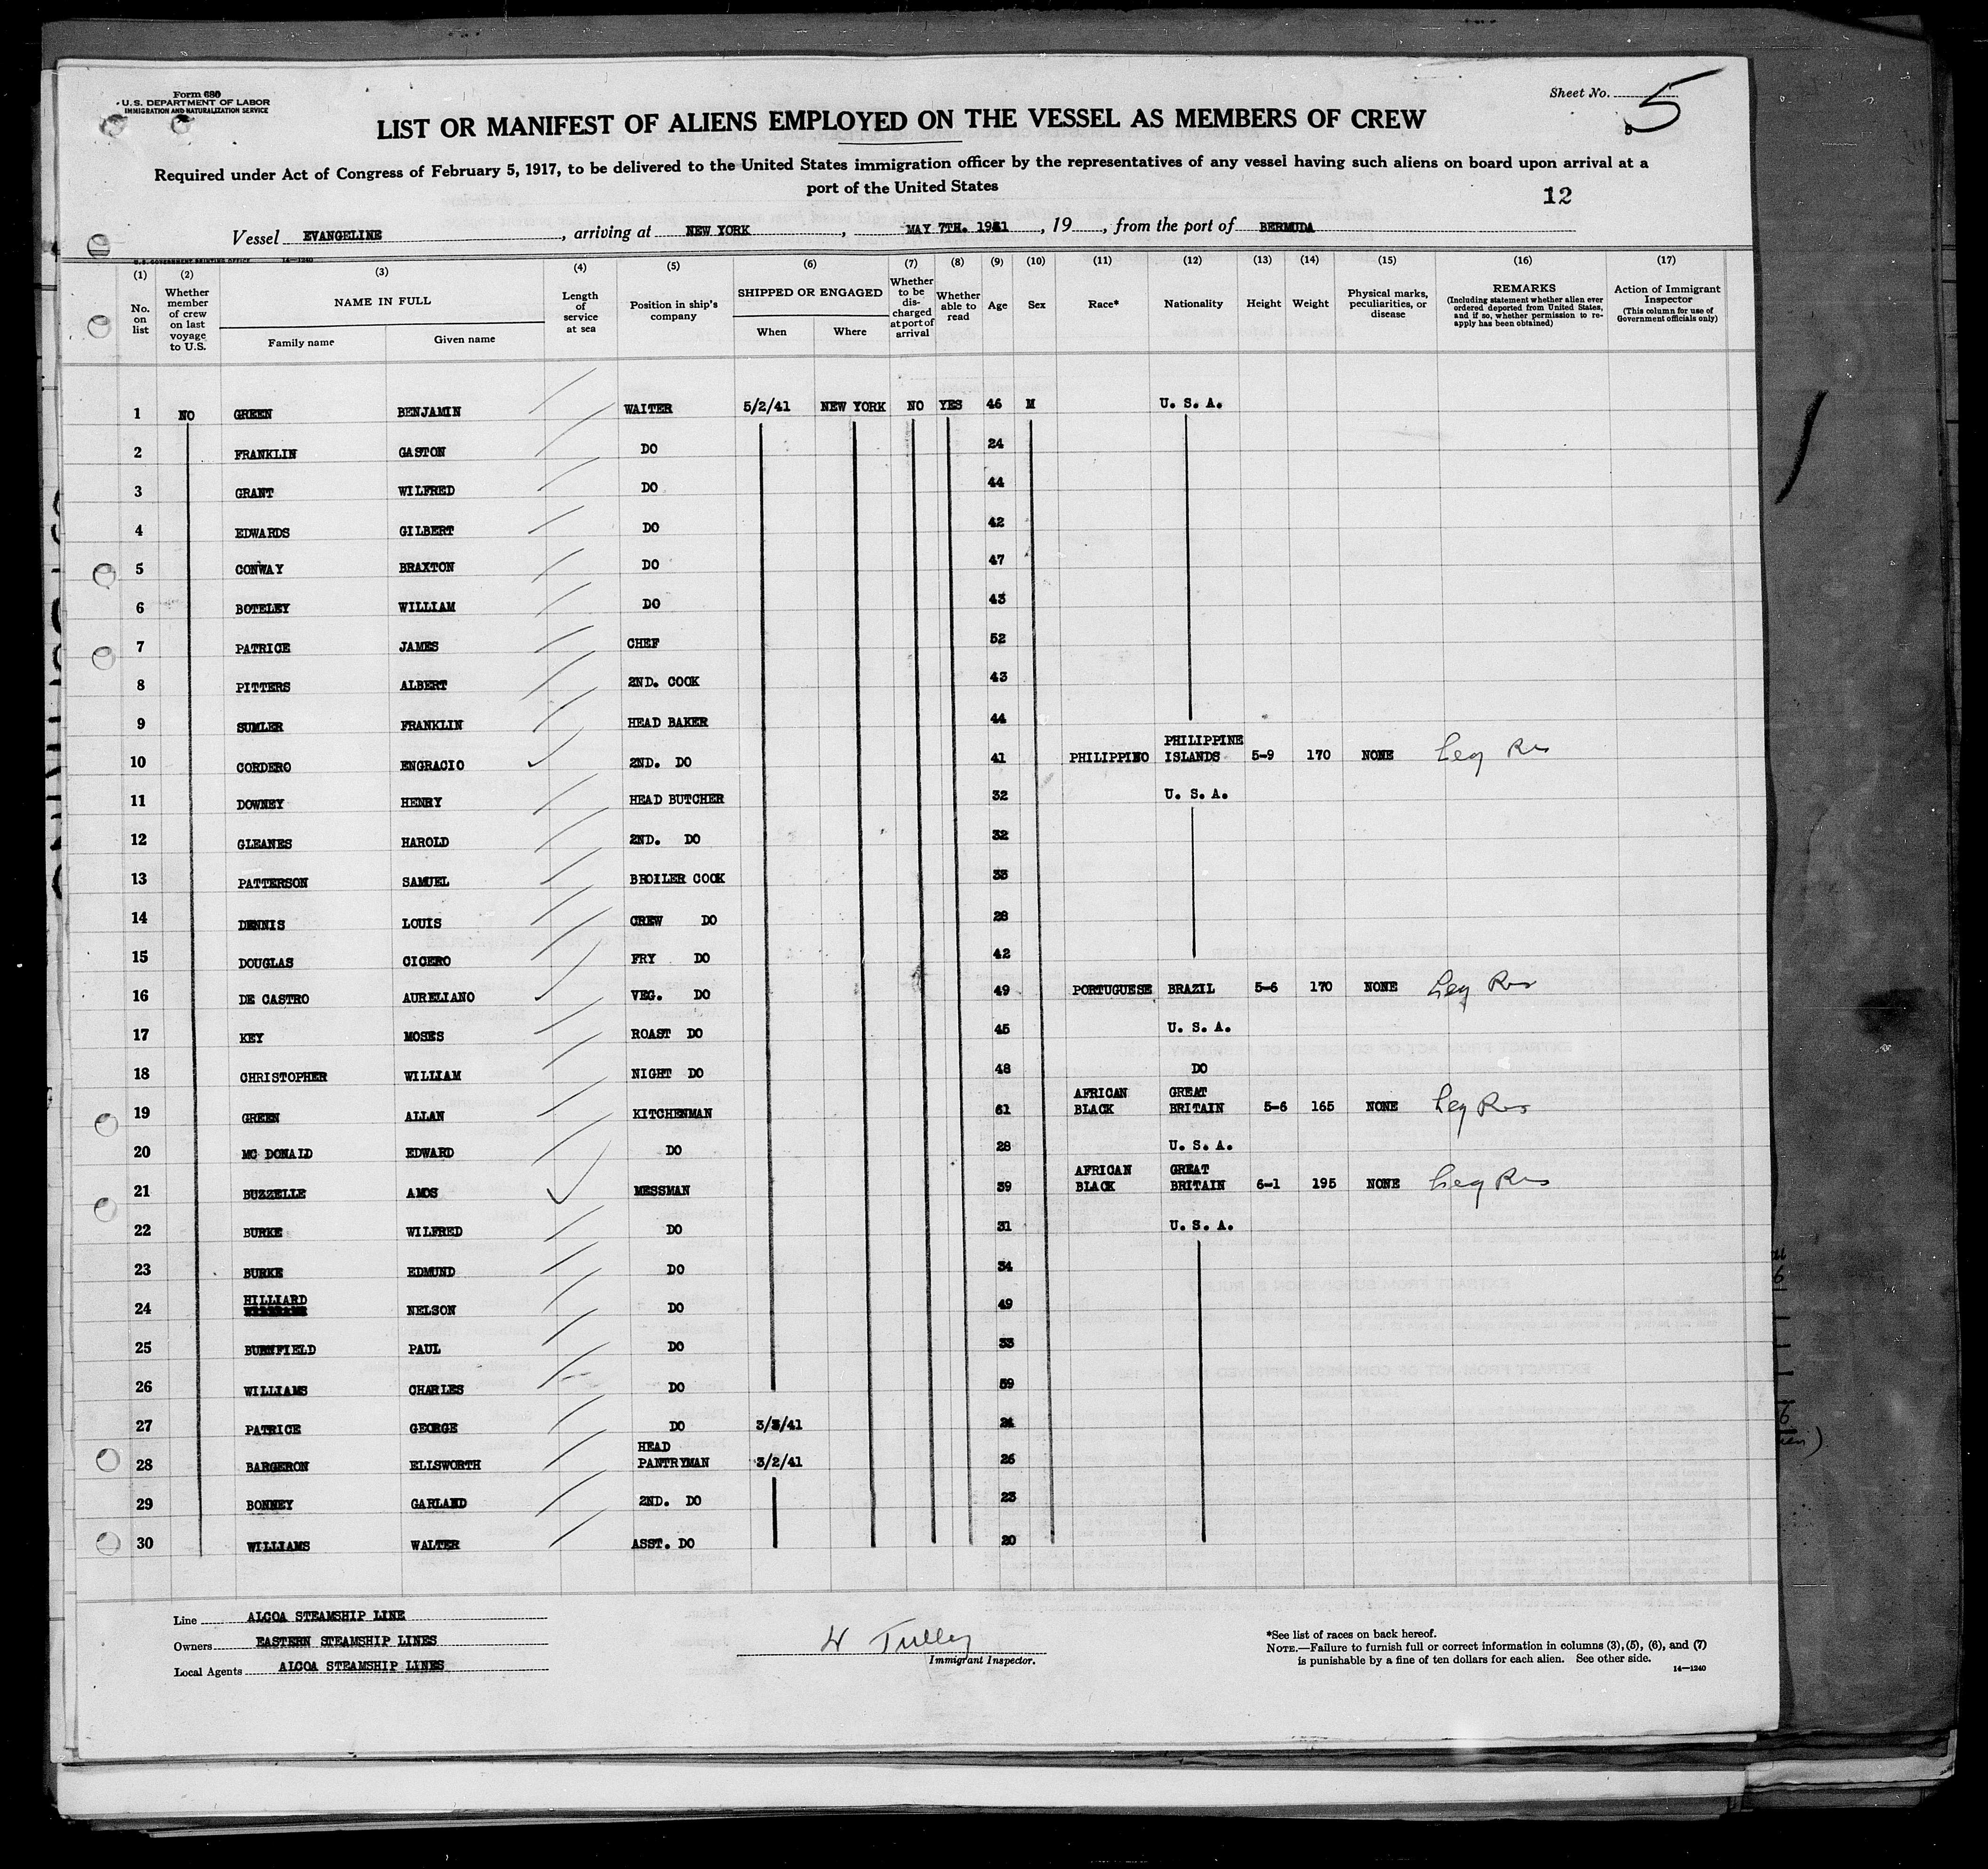 Form 680
U.S. DEPARTMENT OF LABOR
IMMIGRATION AND NATURALIZATION SERVICE
Sheet No. 5
5
LIST OR MANIFEST OF ALIENS EMPLOYED ON THE VESSEL AS MEMBERS OF CREW
Required under Act of Congress of February 5, 1917, to be delivered to the United States immigration officer by the representatives of any vessel having such aliens on board upon arrival at a
port of the United States
12
Vessel EVANGELINE, arriving at NEW YORK, MAY 7TH. 1941, 19, from the port of BERMUDA
U.S. GOVERNMENT PRINTING OFFICE 14—1240
(1) (2) (3) (4) (5) (6) (7) (8) (9) (10) (11) (12) (13) (14) (15) (16) (17)
No. on list
Whether member of crew on last voyage to U.S.
NAME IN FULL
Family name Given name
Length of service at sea
Position in ship's company
SHIPPED OR ENGAGED
When Where
Whether to be discharged at port of arrival
Whether able to read
Age
Sex
Race*
Nationality
Height
Weight
Physical marks, peculiarities, or disease
REMARKS
(Including statement whether alien ever ordered deported from United States, and if so, whether permission to reapply has been obtained)
Action of Immigrant Inspector
(This column for use of Government officials only)
1 NO GREEN BENJAMIN WAITER 5/2/41 NEW YORK NO YES 46 M U. S. A.
2 FRANKLIN GASTON DO 24
3 GRANT WILFRED DO 44
4 EDWARDS GILBERT DO 42
5 CONWAY BRAXTON DO 47
6 BOTELEY WILLIAM DO 43
7 PATRICE JAMES CHEF 52
8 PITTERS ALBERT 2ND. COOK 43
9 SUMLER FRANKLIN HEAD BAKER 44
10 CORDERO ENGRACIO 2ND. DO 41 PHILIPPINO PHILIPPINE ISLANDS 5-9 170 NONE Leg Res
11 DOWNEY HENRY HEAD BUTCHER 32 U. S. A.
12 GLEANES HAROLD 2ND. DO 32
13 PATTERSON SAMUEL BROILER COOK 33
14 DENNIS LOUIS CREW DO 28
15 DOUGLAS CICERO FRY DO 42
16 DE CASTRO AURELIANO VEG. DO 49 PORTUGUESE BRAZIL 5-6 170 NONE Leg Res
17 KEY MOSES ROAST DO 45 U. S. A.
18 CHRISTOPHER WILLIAM NIGHT DO 48 DO
19 GREEN ALLAN KITCHENMAN 61 AFRICAN BLACK GREAT BRITAIN 5-6 165 NONE Leg Res
20 MC DONALD EDWARD DO 28 U. S. A.
21 BUZZELLE AMOS MESSMAN 39 AFRICAN BLACK GREAT BRITAIN 6-1 195 NONE Leg Res
22 BURKE WILFRED DO 31 U. S. A.
23 BURKE EDMUND DO 34
24 HILLIARD NELSON DO 49
25 BURNFIELD PAUL DO 33
26 WILLIAMS CHARLES DO 59
27 PATRICE GEORGE DO 3/3/41 24
28 BARGERON ELLSWORTH HEAD PANTRYMAN 3/2/41 26
29 BONNEY GARLAND 2ND. DO 23
30 WILLIAMS WALTER ASST. DO 20
Line ALCOA STEAMSHIP LINE
Owners EASTERN STEAMSHIP LINES
Local Agents ALCOA STEAMSHIP LINES
W Tulley
Immigrant Inspector.
*See list of races on back hereof.
NOTE.—Failure to furnish full or correct information in columns (3), (5), (6), and (7)
is punishable by a fine of ten dollars for each alien. See other side.
14—1240